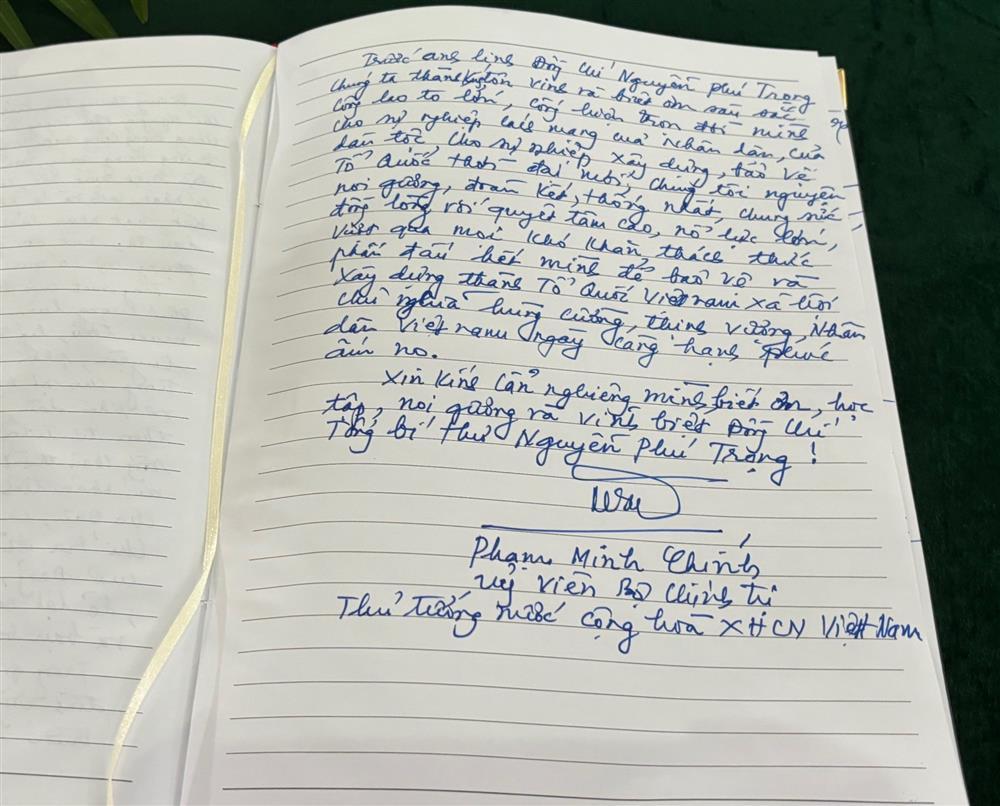 Trước anh linh Đồng chí Nguyễn Phú Trọng
chúng ta thành kính tôn vinh và biết ơn sâu sắc
công lao to lớn, cống hiến trọn đời mình
cho sự nghiệp cách mạng của nhân dân, của
dân tộc, cho sự nghiệp xây dựng, bảo vệ
Tổ Quốc thời đại mới, chúng tôi nguyện
noi gương, đoàn kết, thống nhất, chung sức
đồng lòng với quyết tâm cao, nỗ lực lớn,
vượt qua mọi khó khăn, thách thức
phấn đấu hết mình để bảo vệ và
xây dựng thành Tổ Quốc Việt nam xã hội
chủ nghĩa hùng cường, thịnh vượng, Nhân
dân Việt nam ngày càng hạnh phúc
ấm no.
Xin kính cẩn nghiêng mình, biết ơn, học
tập, noi gương và vĩnh biệt Đồng chí
Tổng bí thư Nguyễn Phú Trọng!
Phạm Minh Chính
uỷ viên Bộ Chính trị
Thủ tướng nước cộng hoà XHCN Việt Nam